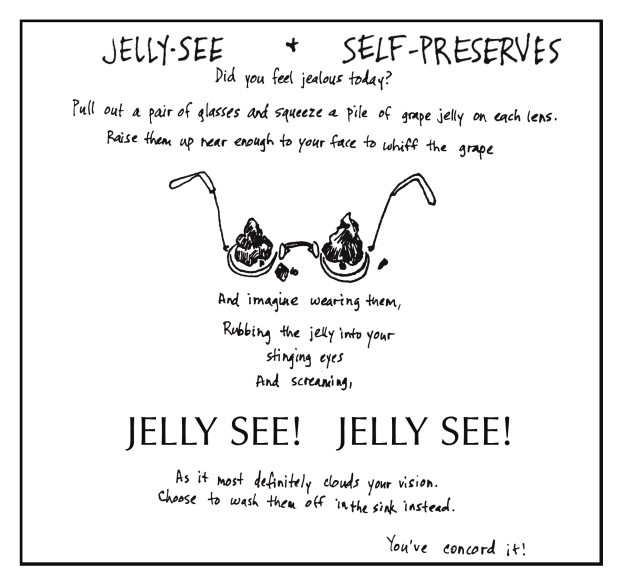 JELLY-SEE + SELF-PRESERVES
Did you feel jealous today?
Pull out a pair of glasses and squeeze a pile of grape jelly on each lens.
Raise them up near enough to your face to whiff the grape
And imagine wearing them,
Rubbing the jelly into your
stinging eyes
And screaming,
JELLY SEE! JELLY SEE!
As it most definitely clouds your vision.
Choose to wash them off in the sink instead.
You've concord it!